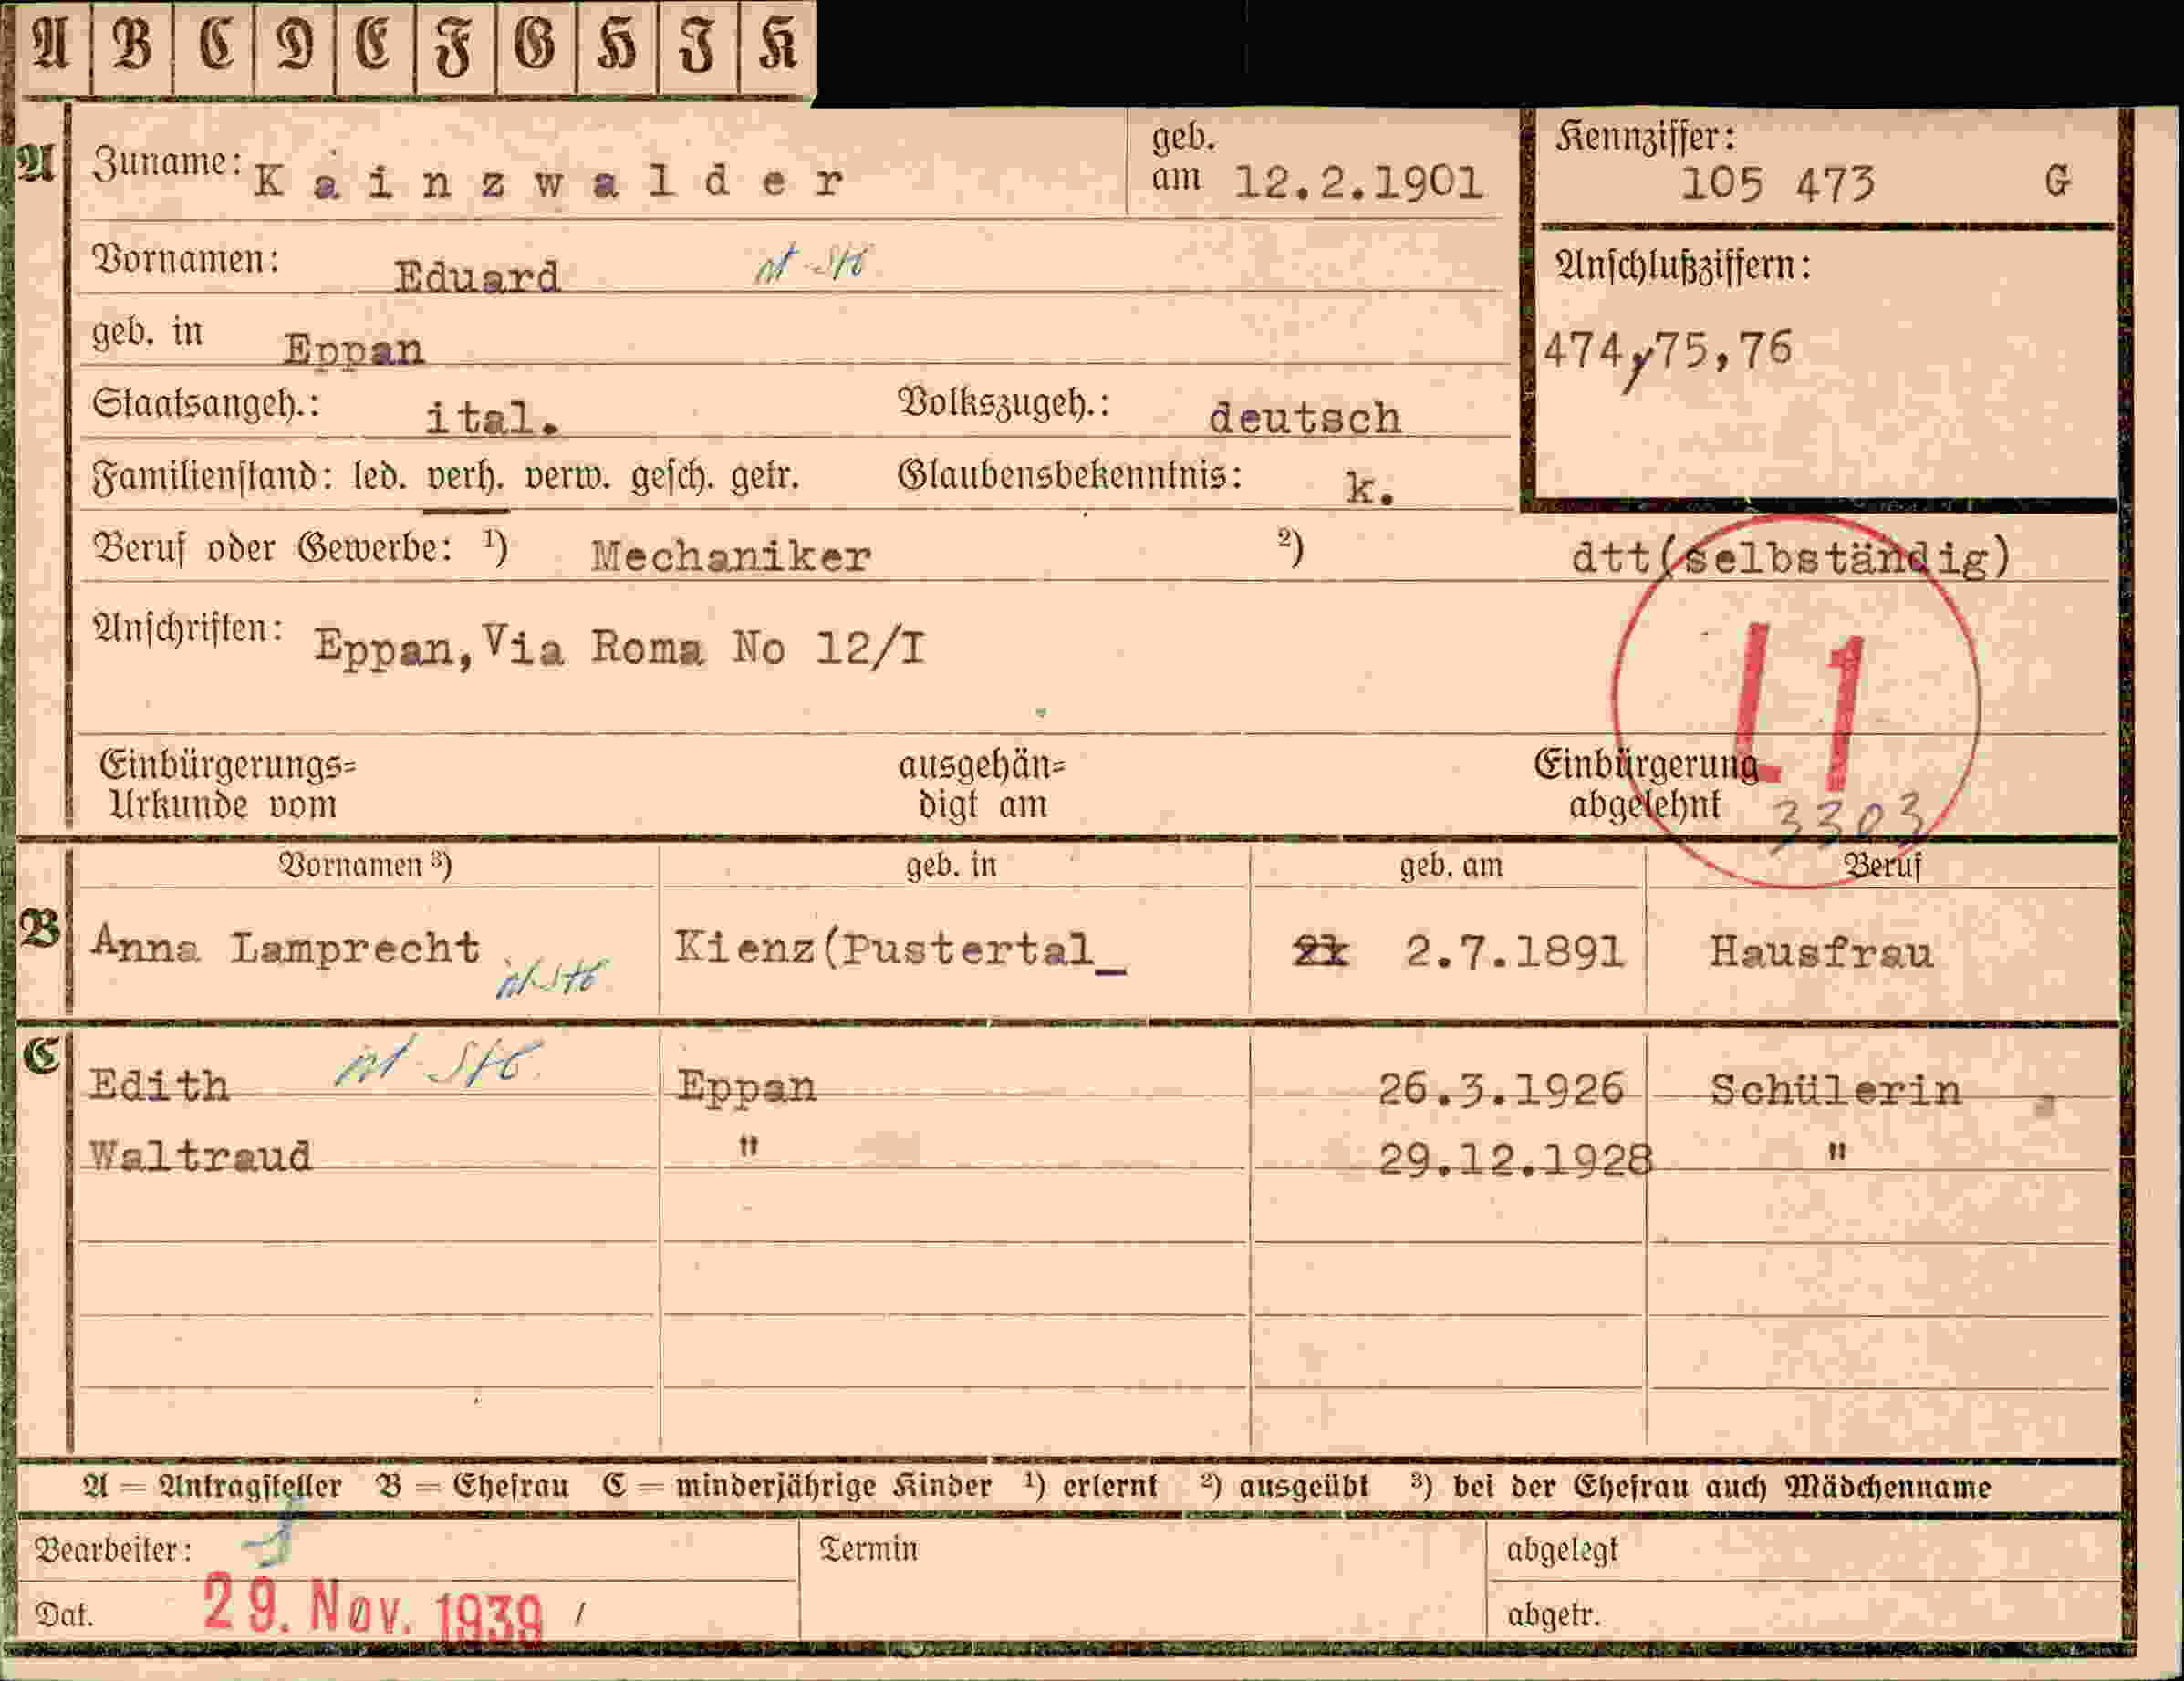 A B C D E F G H I K
A Zuname: Kainzwalder geb. am 12.2.1901 Kennziffer: 105 473 G
Vornamen: Eduard
Anschlußziffern:
geb. in Eppan 474,75,76
Staatsangeh.: ital. Volkszugeh.: deutsch
Familienstand: led. verh. verw. gesch. getr. Glaubensbekenntnis: k.
Beruf oder Gewerbe: ¹) Mechaniker ²) dtt(selbständig)
Anschriften: Eppan,Via Roma No 12/I
L1
Einbürgerungs=
Urkunde vom
ausgehän=
digt am
Einbürgerung
abgelehnt 3303
Vornamen ³) geb. in geb. am Beruf
B Anna Lamprecht Kienz(Pustertal_ 2.7.1891 Hausfrau
C
Edith Eppan 26.3.1926 Schülerin
Waltraud " 29.12.1928 "
A = Antragsteller B = Ehefrau C = minderjährige Kinder ¹) erlernt ²) ausgeübt ³) bei der Ehefrau auch Mädchenname
Bearbeiter: Termin abgelegt
Dat. 29. Nov. 1939 / abgetr.